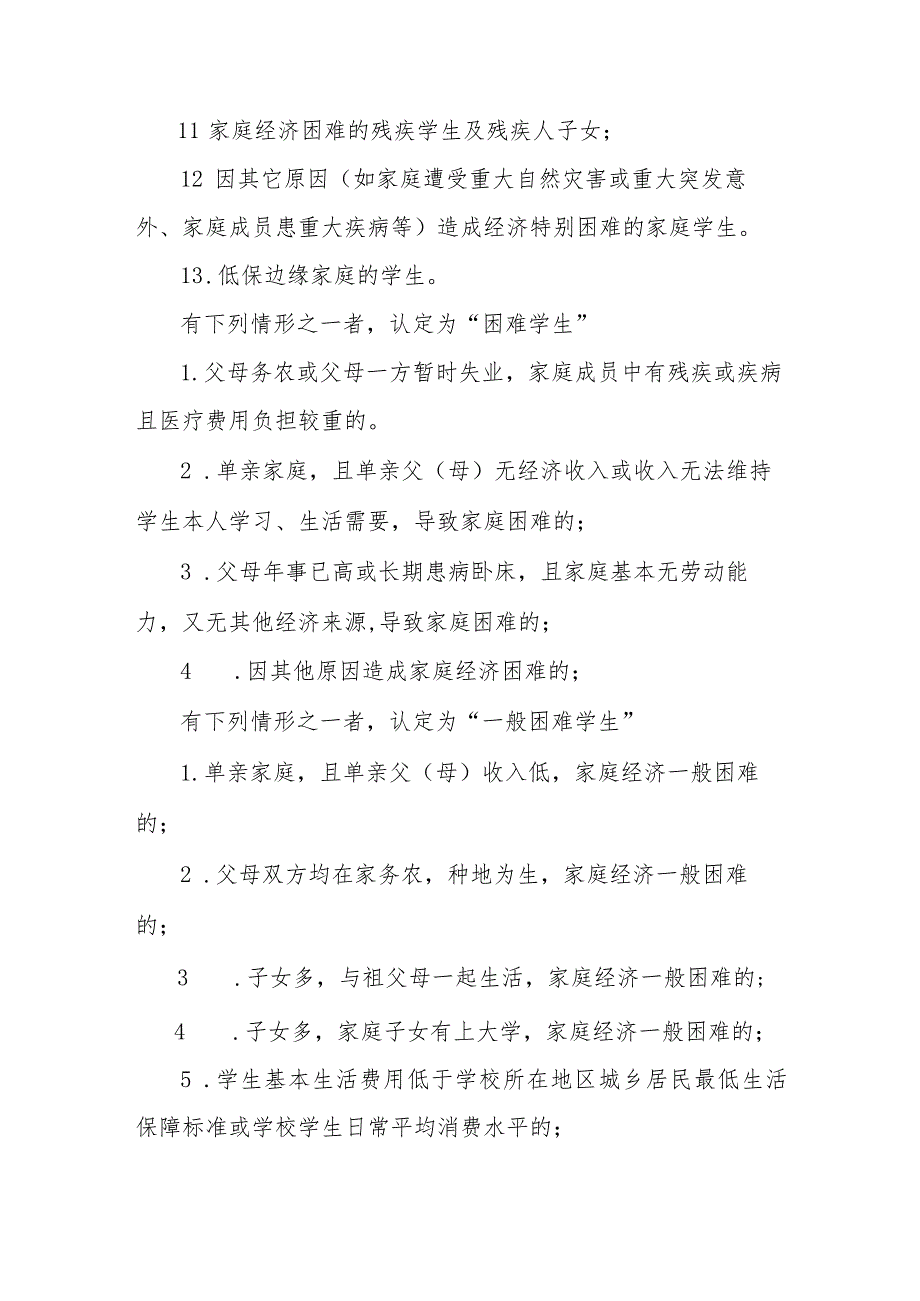 11 家庭经济困难的残疾学生及残疾人子女；
12 因其它原因（如家庭遭受重大自然灾害或重大突发意
外、家庭成员患重大疾病等）造成经济特别困难的家庭学生。
13.低保边缘家庭的学生。
有下列情形之一者，认定为“困难学生”
1.父母务农或父母一方暂时失业，家庭成员中有残疾或疾病
且医疗费用负担较重的。
2 .单亲家庭，且单亲父（母）无经济收入或收入无法维持
学生本人学习、生活需要，导致家庭困难的；
3 .父母年事已高或长期患病卧床，且家庭基本无劳动能
力，又无其他经济来源,导致家庭困难的；
4 .因其他原因造成家庭经济困难的；
有下列情形之一者，认定为“一般困难学生”
1.单亲家庭，且单亲父（母）收入低，家庭经济一般困难
的；
2 .父母双方均在家务农，种地为生，家庭经济一般困难
的；
3 .子女多，与祖父母一起生活，家庭经济一般困难的；
4 .子女多，家庭子女有上大学，家庭经济一般困难的；
5 .学生基本生活费用低于学校所在地区城乡居民最低生活
保障标准或学校学生日常平均消费水平的；